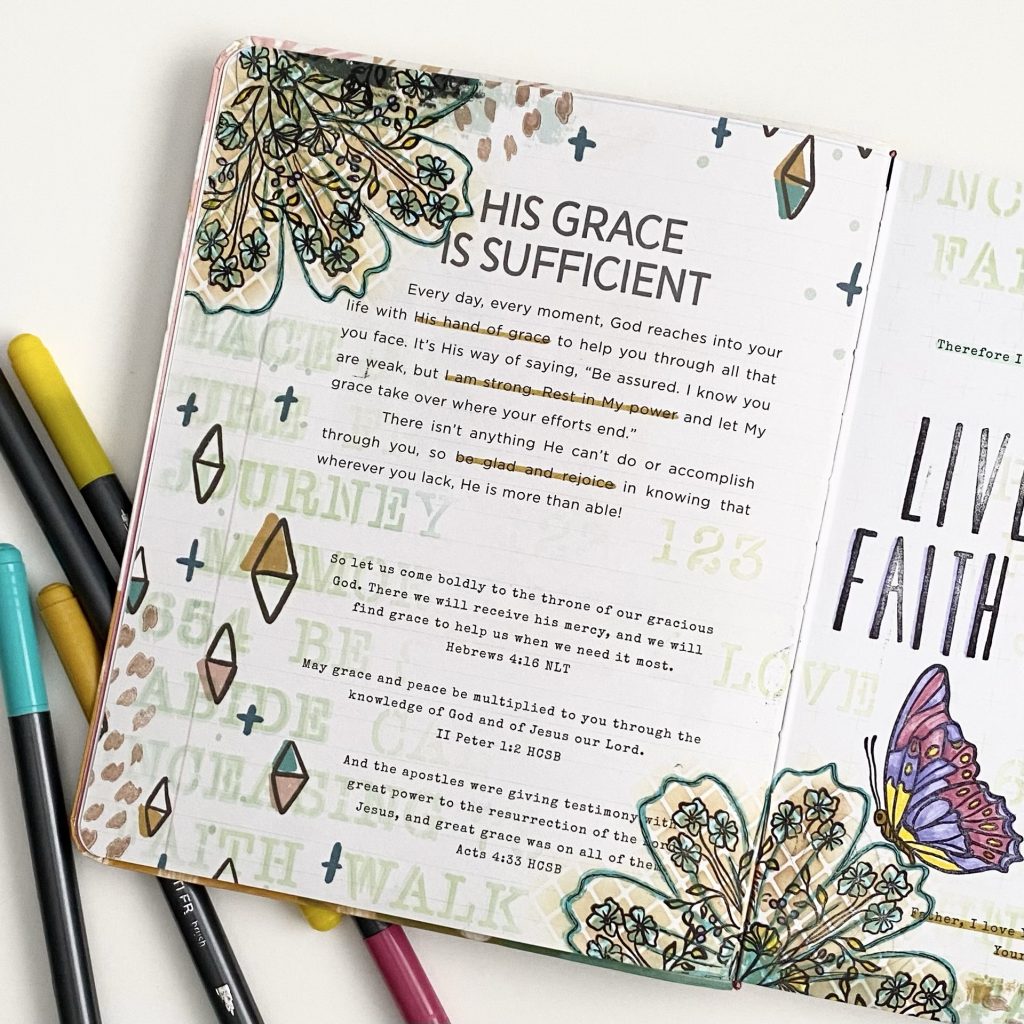 HIS GRACE
IS SUFFICIENT
Every day, every moment, God reaches into your
life with His hand of grace to help you through all that
you face. It's His way of saying, “Be assured. I know you
are weak, but I am strong. Rest in My power and let My
grace take over where your efforts end.”
There isn't anything He can't do or accomplish
through you, so be glad and rejoice in knowing that
wherever you lack, He is more than able!
So let us come boldly to the throne of our gracious
God. There we will receive his mercy, and we will
find grace to help us when we need it most.
Hebrews 4:16 NLT
May grace and peace be multiplied to you through the
knowledge of God and of Jesus our Lord.
II Peter 1:2 HCSB
And the apostles were giving testimony with
great power to the resurrection of the Lord
Jesus, and great grace was on all of them
Acts 4:33 HCSB
JOURNEY
123
654 BE
LOVE
ABIDE
WALK
Therefore I
LIVE
FAITH
Father, I love
Your
brush